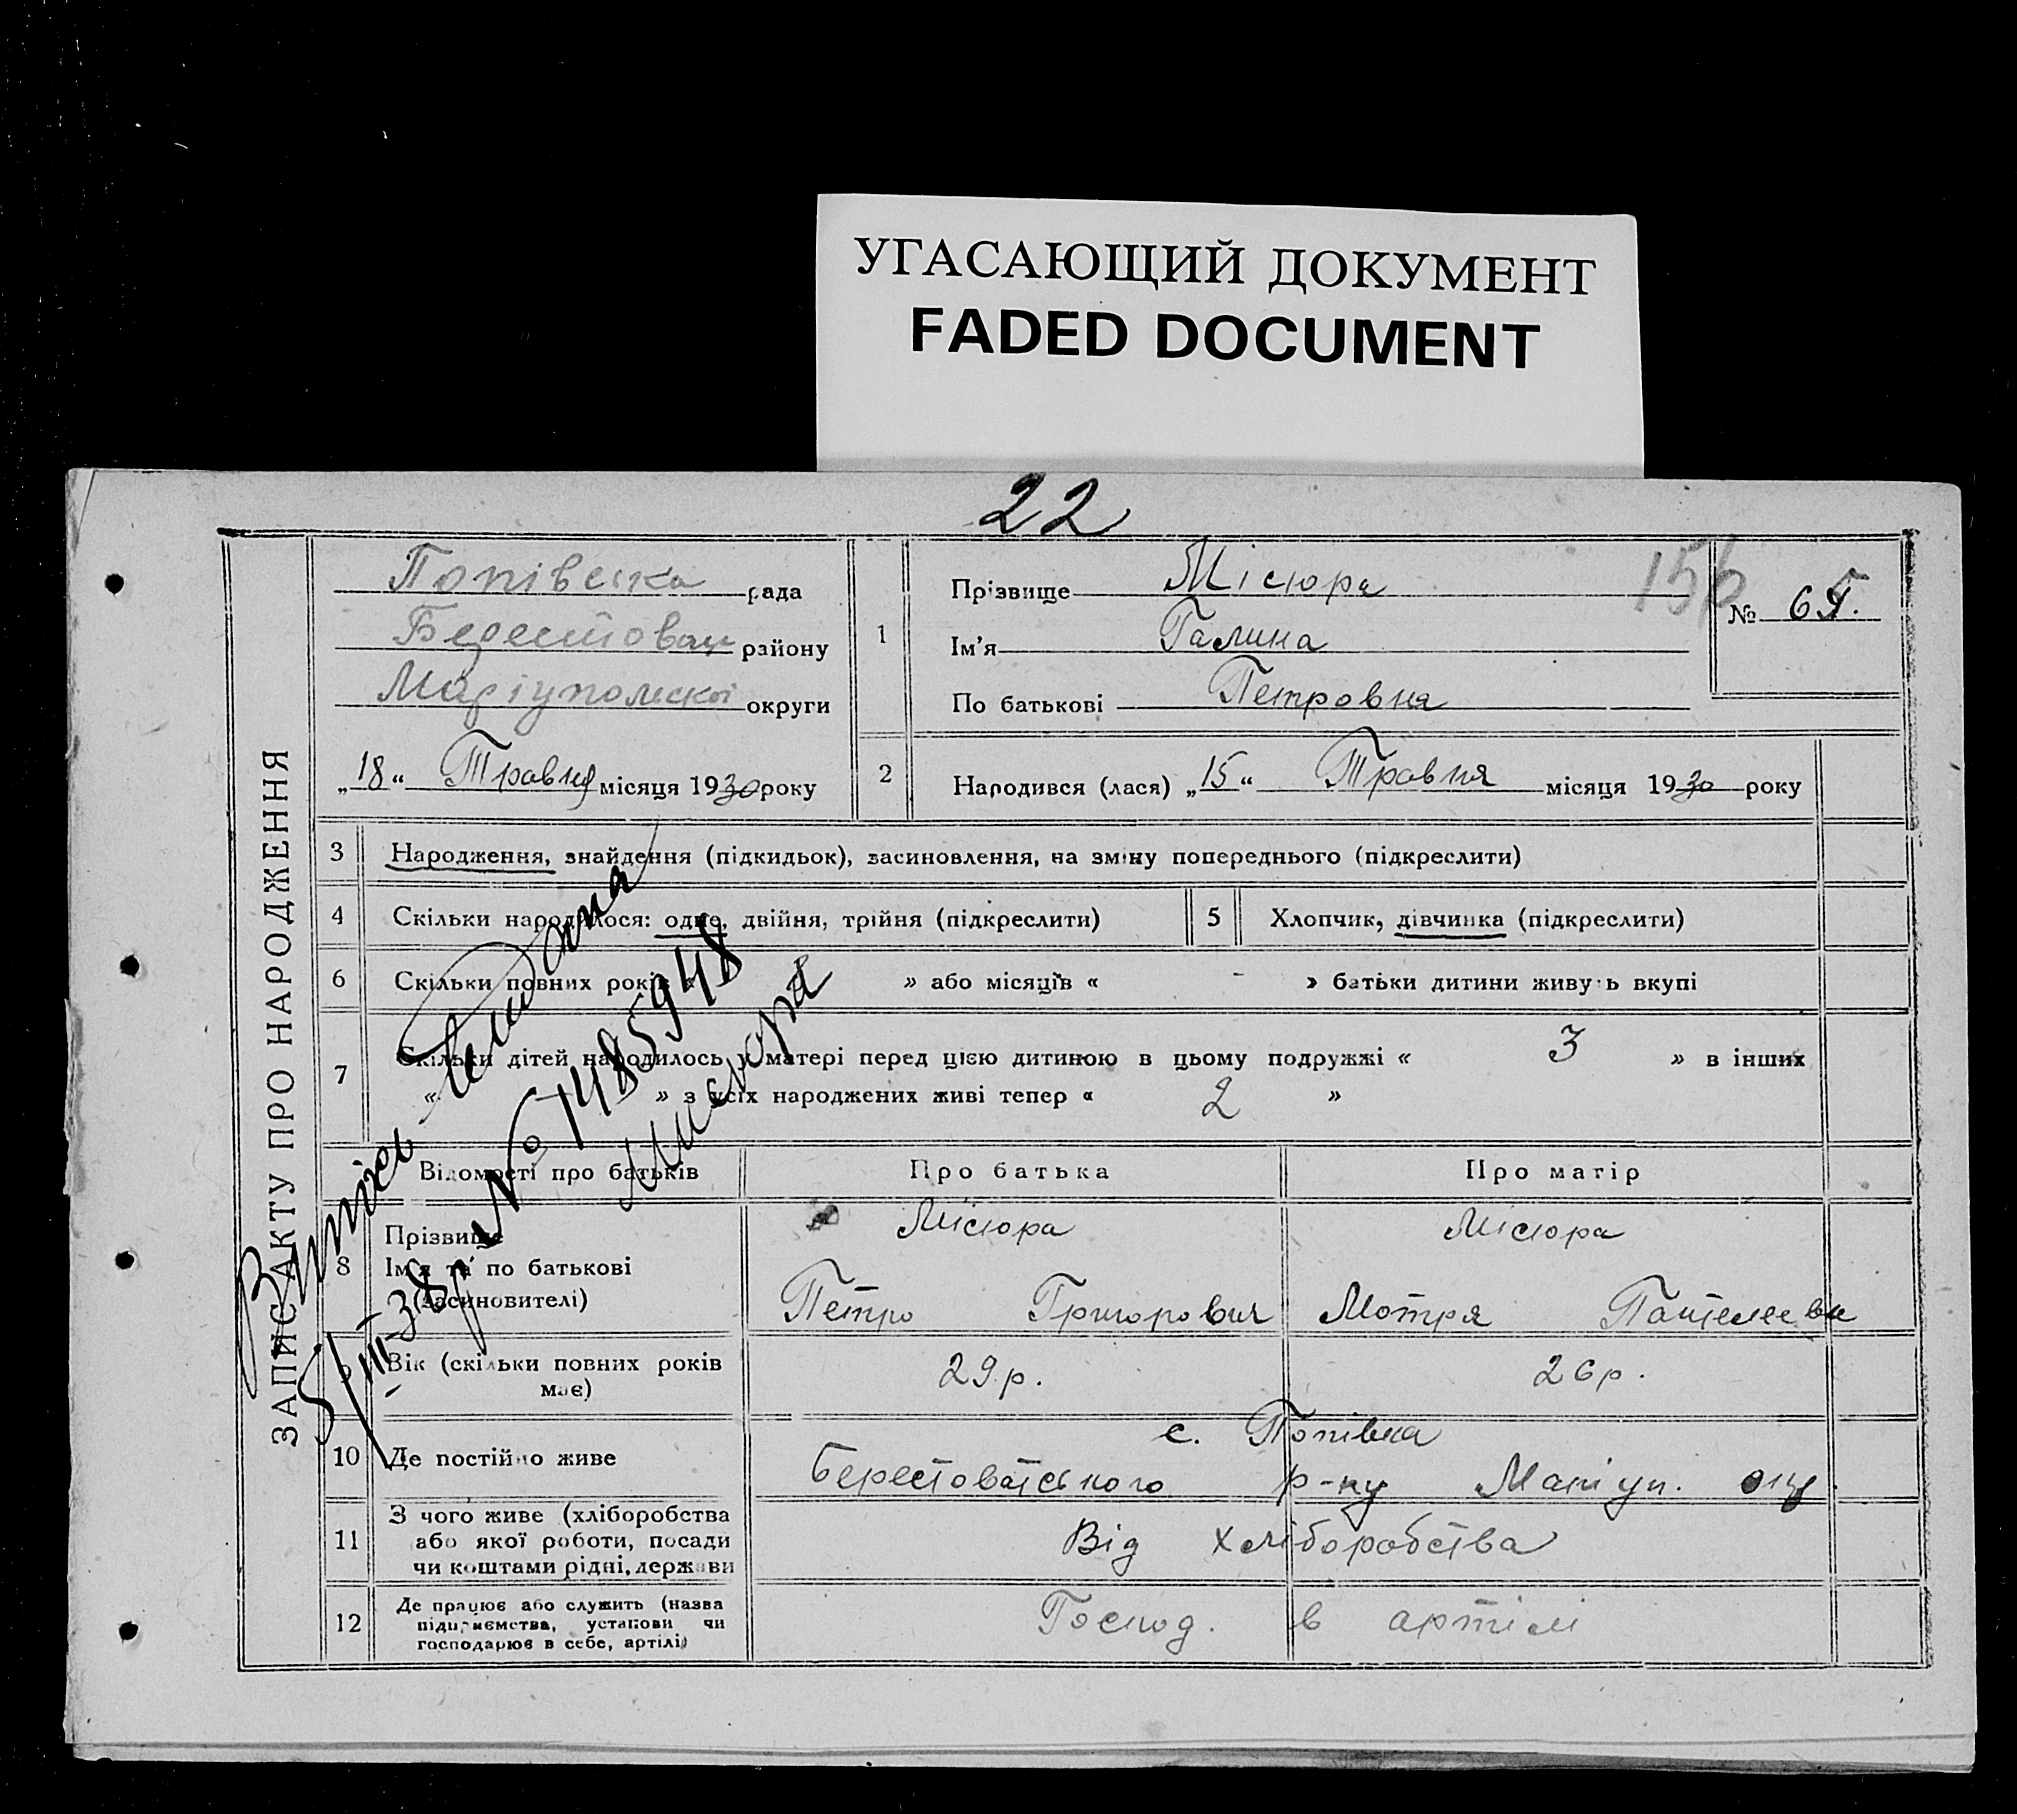 УГАСАЮЩИЙ ДОКУМЕНТ
FADED DOCUMENT
22
ЗАПИС АКТУ ПРО НАРОДЖЕННЯ
Попівська рада
Берестовац району
Маріупольскої округи
„18“ Травня місяця 1930 року
1
Прізвище Місюра
Ім'я Галина
По батькові Петровна
156
№ 65.
2 Народився (лася) „15“ Травня місяця 1930 року
3 Народження, знайдення (підкидьок), засиновлення, на зміну попереднього (підкреслити)
4 Скільки народилося: одно, двійня, трійня (підкреслити) 5 Хлопчик, дівчинка (підкреслити)
6 Скільки повних років « » або місяців « - » батьки дитини живуть вкупі
7 Скільки дітей народилось у матері перед цією дитиною в цьому подружжі « 3 » в інших
« » з усіх народжених живі тепер « 2 »
Відомості про батьків Про батька Про матір
8 Прізвище Місюра Місюра
Ім'я та по батькові Петро Григорович Мотря Пантелеевн
(засиновителі)
9 Вік (скільки повних років має) 29 р. 26 р.
10 Де постійно живе с. Попівка
Берестоватського р-ну Маріуп. окр
11 З чого живе (хліборобства Від хліборобства
або якої роботи, посади
чи коштами рідні, держави
12 Де працює або служить (назва Господ. в артілі
підприємства, установи чи
господарює в себе, артілі)
5/III-38р № 1485948
Мисюра